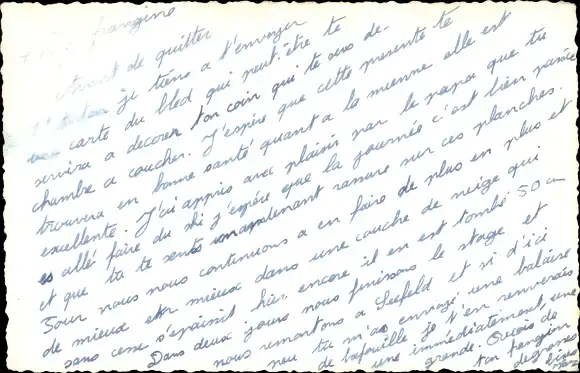 frangine
Avant de quitter
je tiens a t'envoyer
carte du bled qui peut-être te
servira a decorer ton coin qui te sers de
chambre a coucher. J'espère que cette presente te
trouvera en bonne santé quant a la mienne elle est
excellente. J'ai appris avec plaisir par le papa que tu
es allé faire du ski j'espère que la journée c'est bien passée
et que tu te sents maintenant rassure sur ces planches.
Pour nous nous continuons a en faire de plus en plus et
de mieux en mieux dans une couche de neige qui
sans cesse s'epaissit hier encore il en est tombé 50 cm
Dans deux jours nous finissons le stage et
nous remontons a Seefeld et si d'ici
peu tu m'as envoyé une balaise
de bafouille je t'en renverrais
une immédiatement, une
grande. Reçois de
ton frangin
de grosses
bises